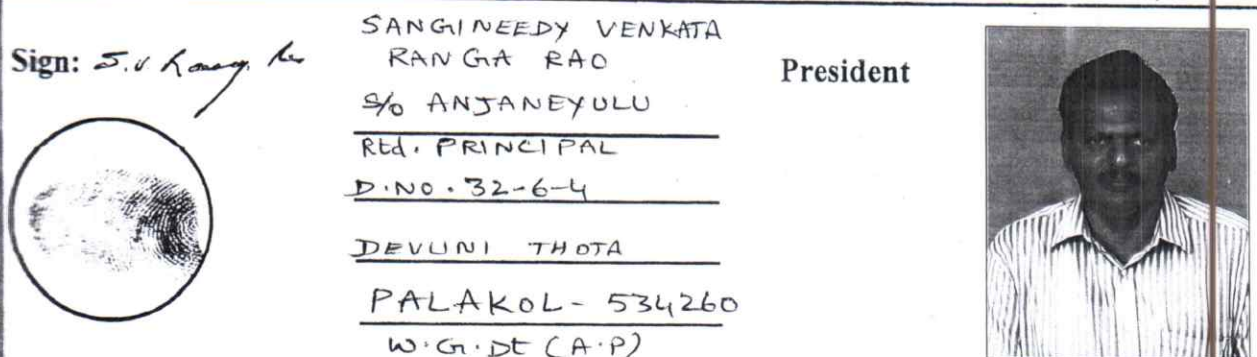 Sign: S.V. Ranga Rao
SANGINEEDY VENKATA
RANGA RAO
S/o ANJANEYULU
Rtd. PRINCIPAL
D.NO. 32-6-4
DEVUNI THOTA
PALAKOL - 534260
W.G.Dt (A.P)
President